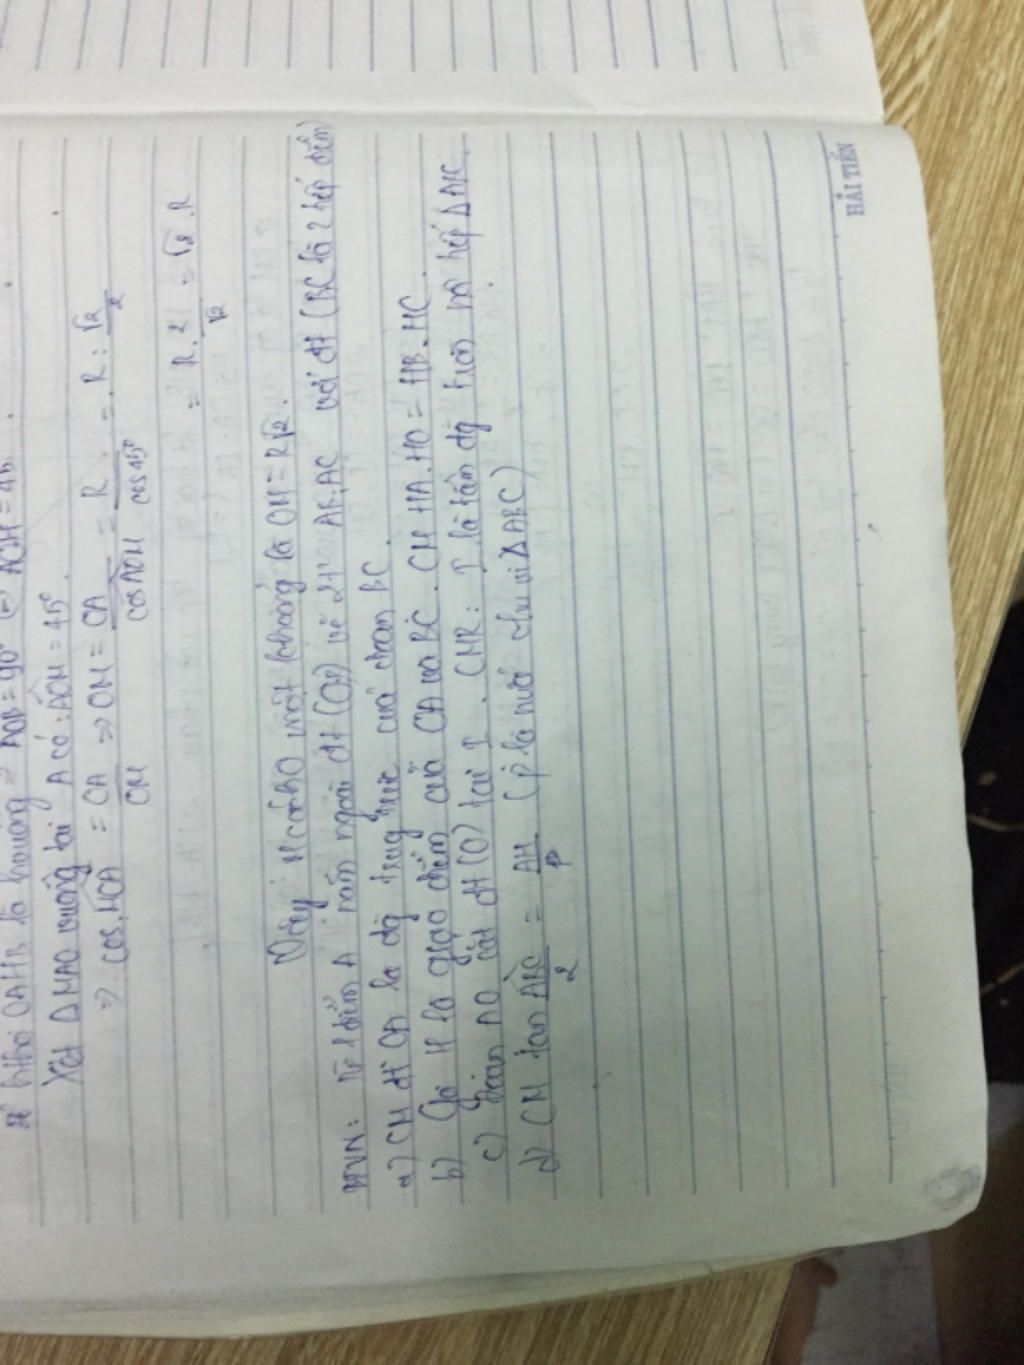 tứ giác OAMB là h.vuông ⇒ AOB = 90° ⇒ AOM = 45
Xét ΔMAO vuông tại A có: AÔM = 45°.
⇒ cos. MOA = OA/OM ⇒ OM = OA/cos AOM = R/cos 45° = R : √2/2
= R. 2/√2 = √2 . R
Vậy M cách O một khoảng là OM = R√2.
BTVN: Từ 1 điểm A nằm ngoài đt (O;R) vẽ 2 t² AB, AC với đt (B,C là 2 tiếp điểm)
a) CM đt OA là đg trung trực của đoạn BC.
b) Gọi H là giao điểm của OA và BC. CM HA.HO = HB.HC.
c) Đoạn AO cắt đt (O) tại I. CMR: I là tâm đg tròn nội tiếp ΔABC.
d) CM tan ABC/2 = AH/p (p là nửa chu vi ΔABC)
HẢI TIẾN